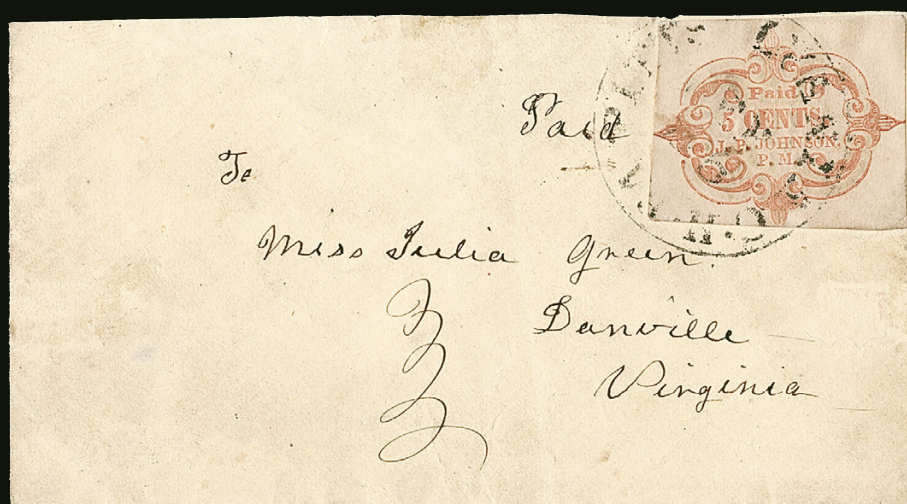 Paid
5 CENTS.
J. P. JOHNSON.
P. M.
Paid
To
Miss Julia Green.
Danville
Virginia